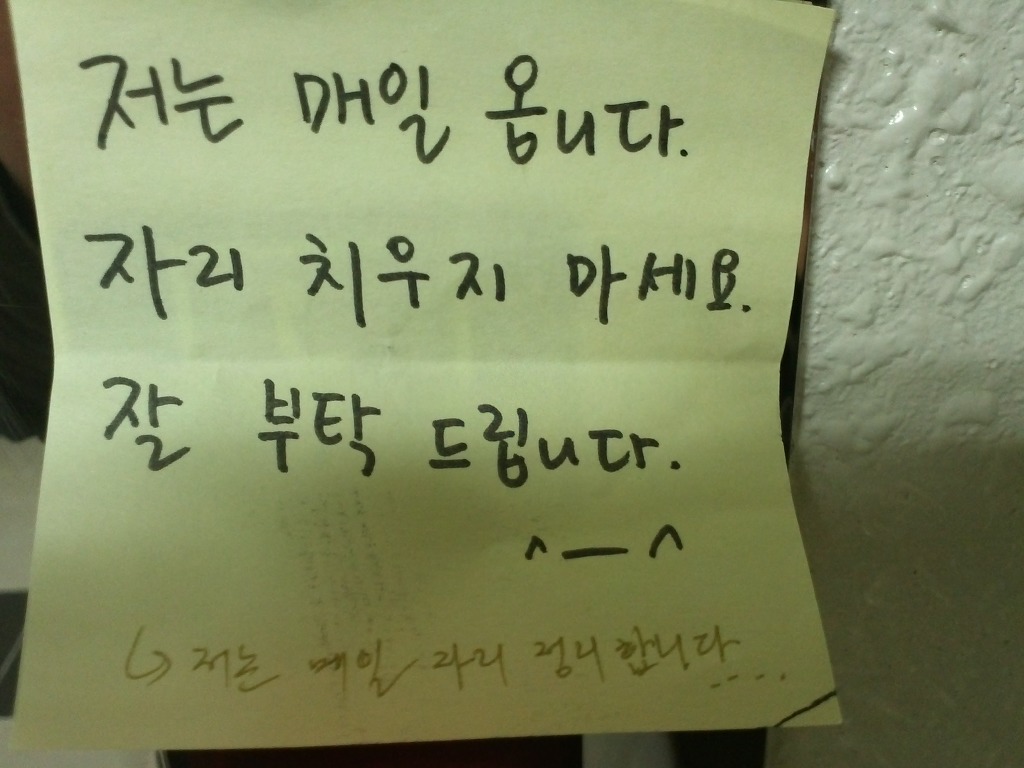 저는 매일 옵니다.
자리 치우지 마세요.
잘 부탁 드립니다.
^—^
↳ 저는 매일 자리 정리합니다....